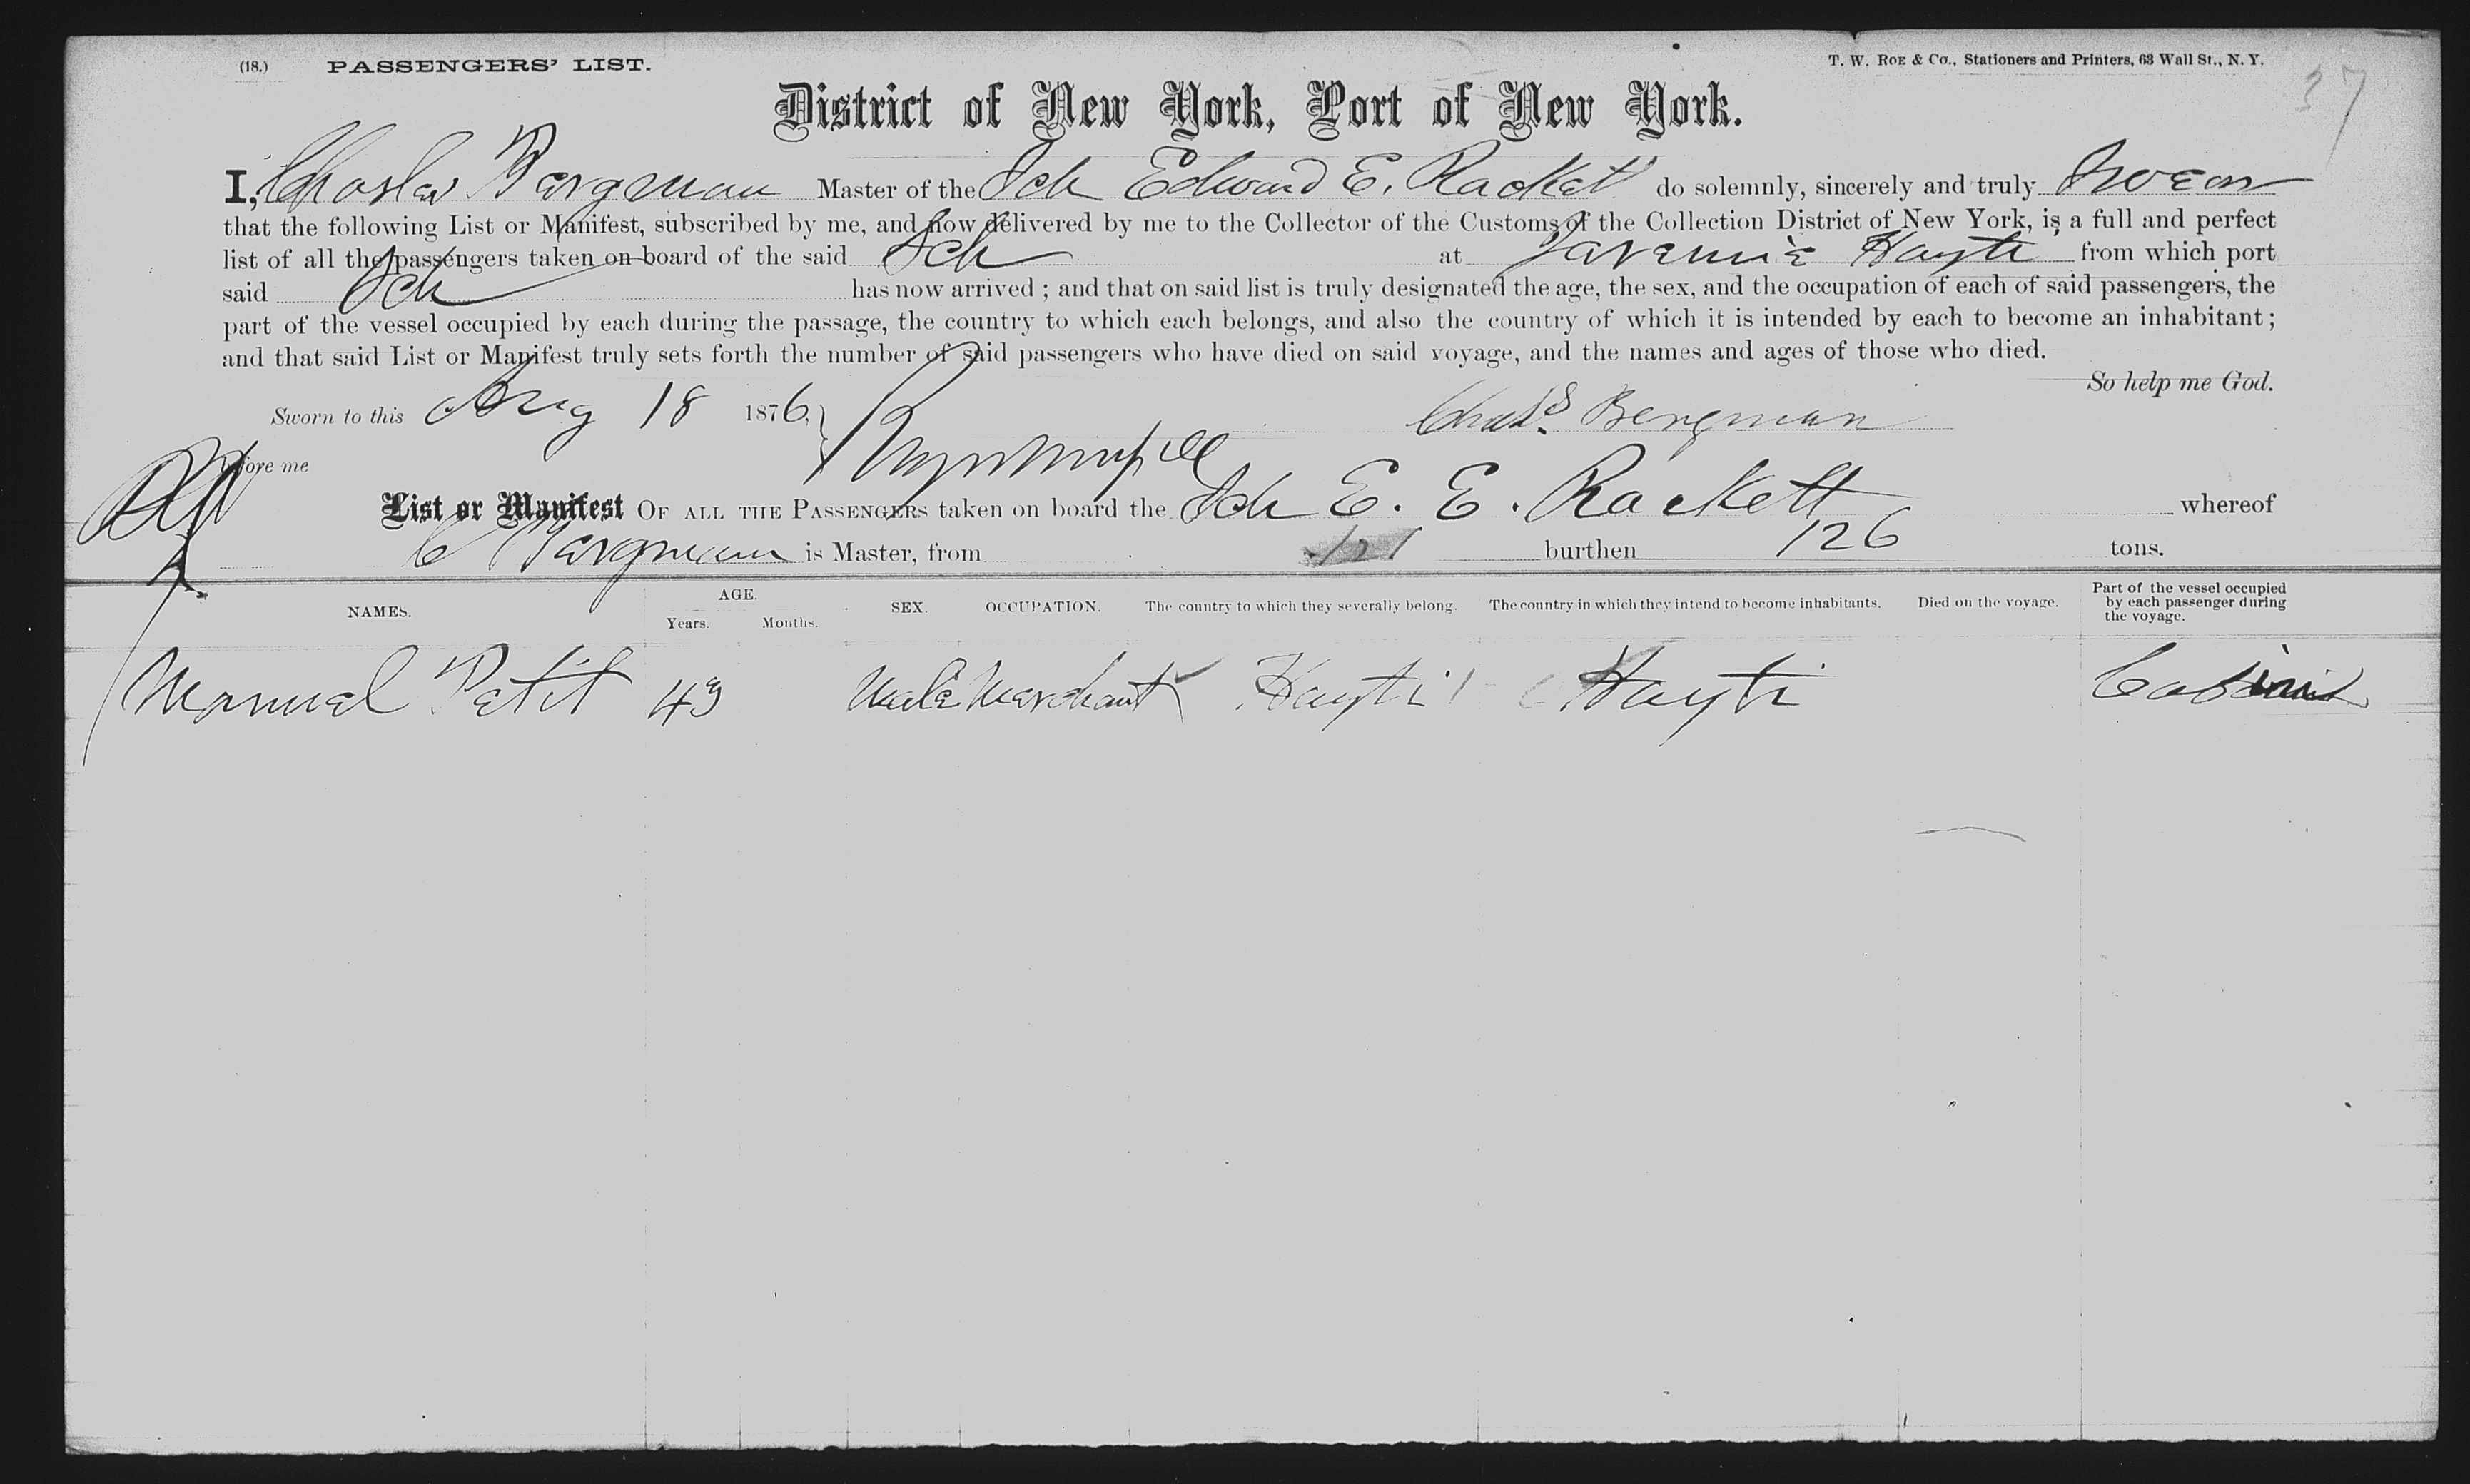 (18.) PASSENGERS' LIST. T. W. ROE & CO., Stationers and Printers, 63 Wall St., N. Y.
37
District of New York, Port of New York.
I, Charles Bergman Master of the Sch Edward E. Racket do solemnly, sincerely and truly Swear
that the following List or Manifest, subscribed by me, and now delivered by me to the Collector of the Customs of the Collection District of New York, is a full and perfect
list of all the passengers taken on board of the said Sch at Jaremie Hayti from which port
said Sch has now arrived ; and that on said list is truly designated the age, the sex, and the occupation of each of said passengers, the
part of the vessel occupied by each during the passage, the country to which each belongs, and also the country of which it is intended by each to become an inhabitant ;
and that said List or Manifest truly sets forth the number of said passengers who have died on said voyage, and the names and ages of those who died.
So help me God.
Sworn to this Aug 18 1876. Chas. Bergman
before me
List or Manifest OF ALL THE PASSENGERS taken on board the Sch E. E. Rackett whereof
C Bergman is Master, from burthen 126 tons.
NAMES. AGE. Years. Months. SEX. OCCUPATION. The country to which they severally belong. The country in which they intend to become inhabitants. Died on the voyage. Part of the vessel occupied by each passenger during the voyage.
Manuel Petit 43 Male Merchant Hayti Hayti Cabin